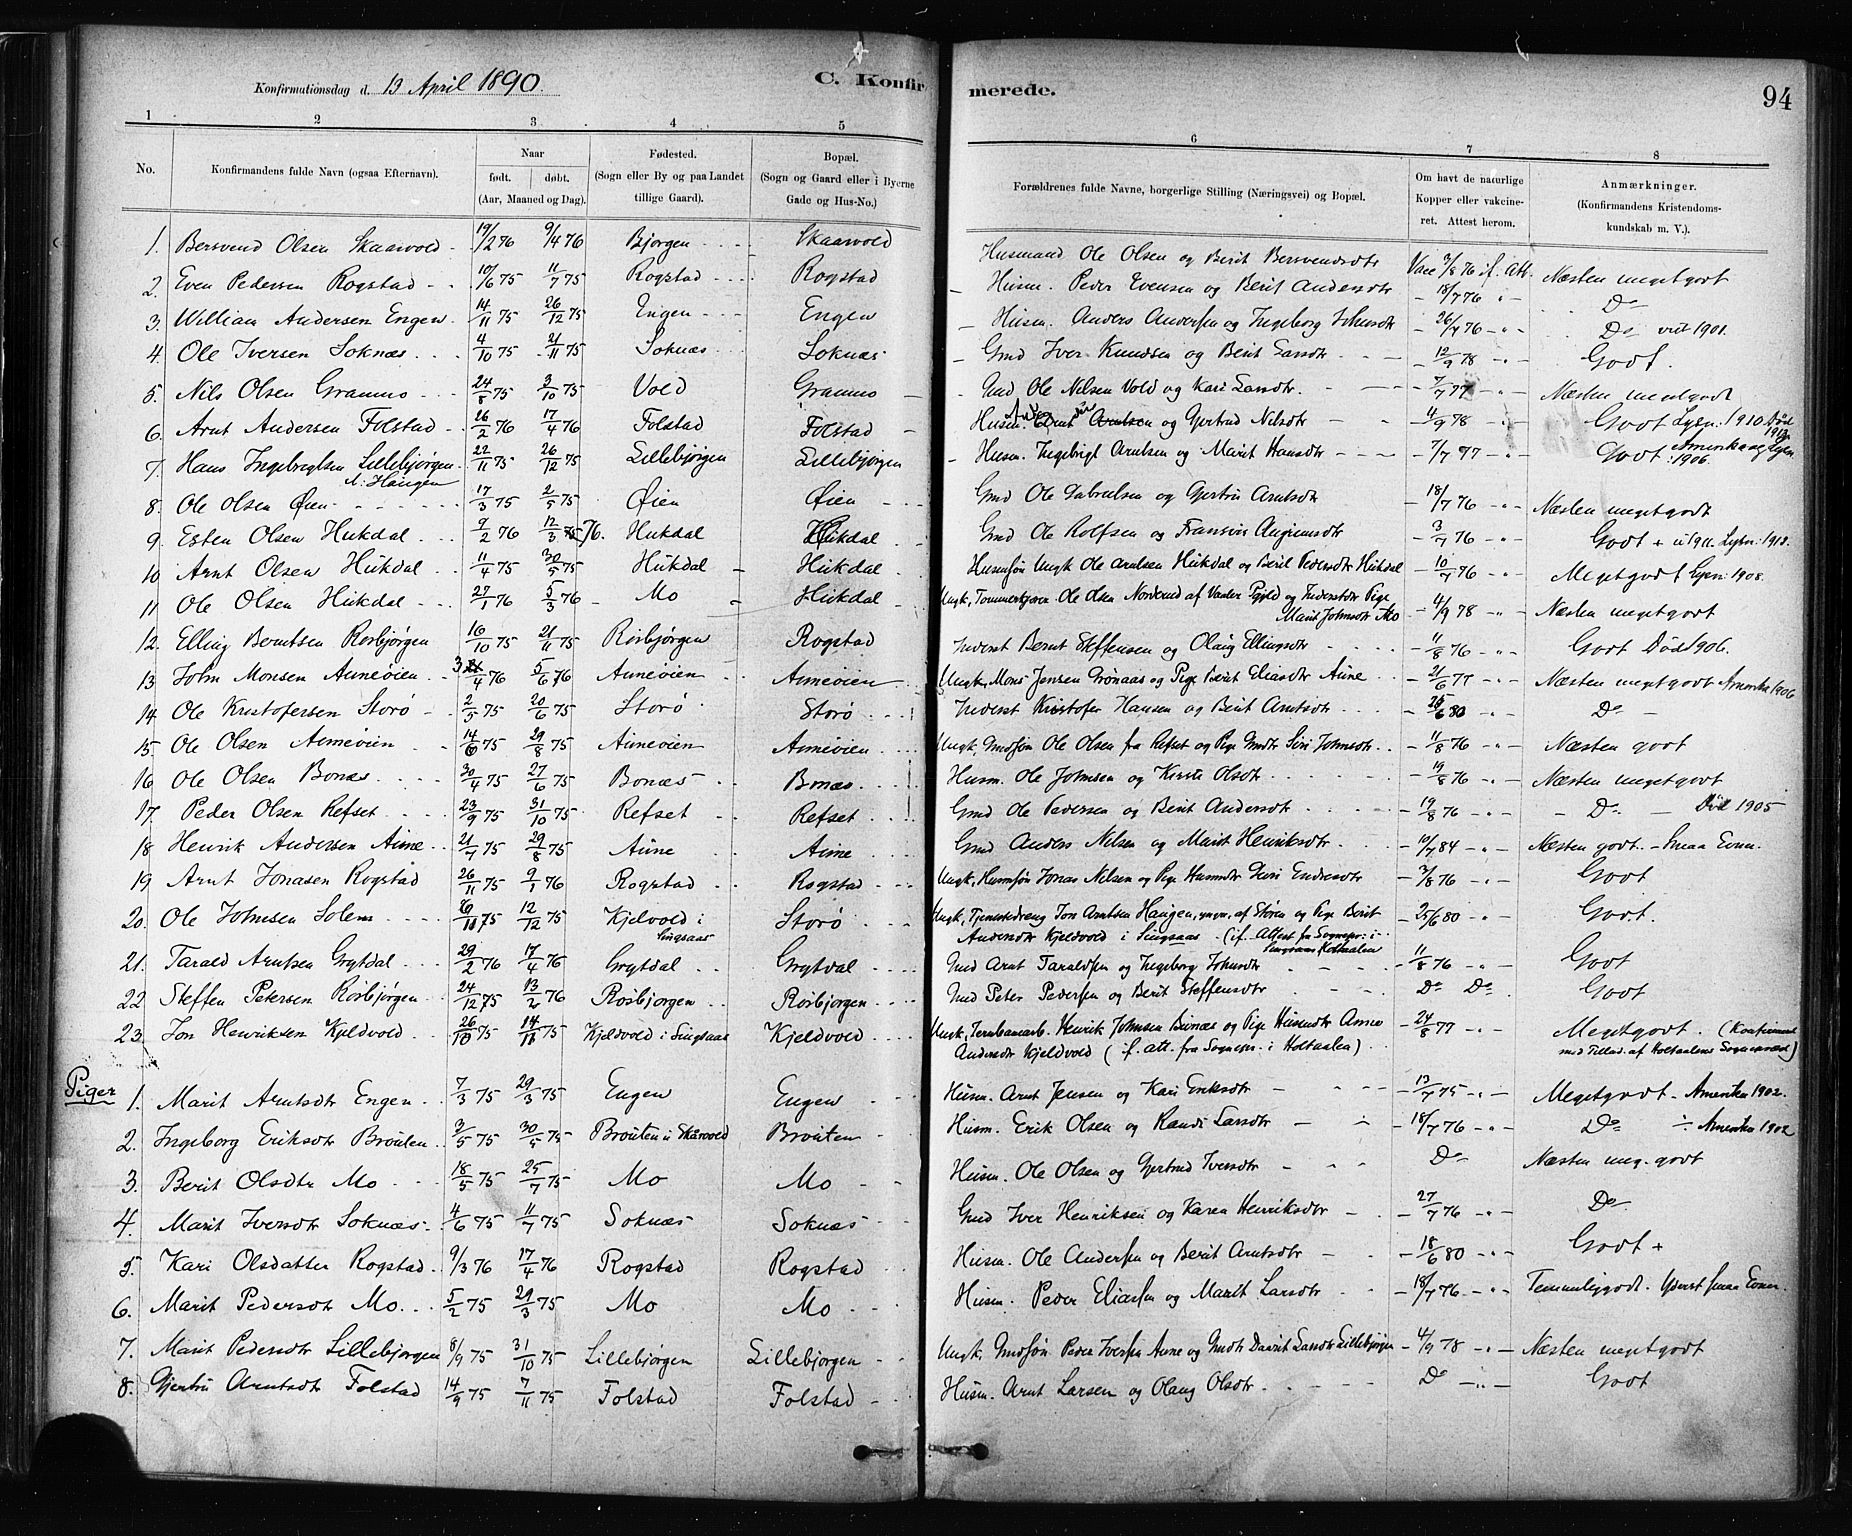 Konfirmationsdag d. 13 April 1890.
C. Konfirmerede.
94
1 2 3 4 5 6 7 8
No.
Konfirmandens fulde Navn (ogsaa Efternavn).
Naar
født. døbt.
(Aar, Maaned og Dag).
Fødested.
(Sogn eller By og paa Landet
tillige Gaard).
Bopæl.
(Sogn og Gaard eller i Byerne
Gade og Hus-No.)
Forældrenes fulde Navne, borgerlige Stilling (Næringsvei) og Bopæl.
Om havt de naturlige
Kopper eller vakcine-
ret. Attest herom.
Anmærkninger.
(Konfirmandens Kristendoms-
kundskab m. V.).
1. Bersvend Olsen Skaarvold 19/2 76 9/4 76 Bjørgen Skaarvold Husmand Ole Olsen og Berit Bersvendsdtr Vacc 3/8 76 if. Att. Næsten megetgodt
2. Even Pedersen Rogstad 10/6 75 11/7 75 Rogstad Rogstad Husm. Peder Evensen og Berit Andersdtr 18/7 76 Do
3. William Andersen Engen 14/11 75 26/12 75 Engen Engen Husm. Anders Andersen og Ingeborg Johnsdtr 26/7 76 Do 1901.
4. Ole Iversen Soknæs 4/10 75 21/11 75 Soknæs Soknæs Gmd Iver Knudsen og Berit Larsdtr 12/9 78 Godt.
5. Nils Olsen Gramno 24/8 75 3/10 75 Vold Gramno Gmd Ole Nilsen Vold og Kari Larsdtr 7/7 77 Næsten megetgodt
6. Arnt Andersen Folstad 26/2 76 17/4 76 Folstad Folstad Husm. Arntsen og Gjertrud Nilsdtr 4/9 78 Godt 1910 Død
7. Hans Ingebrigtsen Lillebjørgen 22/11 75 26/12 75 Lillebjørgen Lillebjørgen Husm. Ingebrigt Arntsen og Marit Hansdtr 7/7 77 Godt Amerika 1906.
n: Haugen
8. Ole Olsen Øien 17/3 75 2/5 75 Øien Øien Gmd Ole Gabrielsen og Gjertru Arntsdtr 18/7 76 Næsten megetgodt
9. Esten Olsen Hukdal 9/2 76 12/3 76. Hukdal Hukdal Gmd Ole Rolfsen og 3/7 76 Godt + 1911. 1918.
10 Arnt Olsen Hukdal 11/4 75 30/5 75 Hukdal Hukdal Husmsøn Ungk Ole Arntsen Hukdal og Berit Pedersdtr Hukdal 10/7 76 Megetgodt 1908.
11 Ole Olsen Hukdal 27/1 76 5/3 76 Mo Hukdal Ungk, Ole Olsen af og Inderstdtr Pige
Marit Johnsdtr Mo 4/9 78 Næsten megetgodt
12. Elling Berntsen Rosbjørgen 16/10 75 21/11 75 Rosbjørgen Rogstad Inderst Bernt Steffensen og Olaug Ellingsdtr 11/8 76 Godt Død 1906.
13 John Monsen Aunøien 3/4 76 5/6 76 Aunøien Aunøien Ungk, Mons Jensen Grønaas og Pige Berit Eliasdtr Aune 21/6 77 Næsten megetgodt Amerika 1906
14. Ole Kristofersen Storø 2/5 75 20/6 75 Storø Storø Inderst Kristofer Hansen og Berit Arntsdtr 25/6 80 Do
15. Ole Olsen Aunøien 14/6 75 29/8 75 Aunøien Aunøien Ungk, Gmdsøn Ole Olsen fra Refset og Pige Gmdtr Siri Johnsdtr 11/8 76 Næsten godt
16 Ole Olsen Bonæs 30/4 75 27/6 75 Bonæs Bonæs Husm. Ole Johnsen og Kirsti Olsdtr 19/8 76 Næsten megetgodt
17. Peder Olsen Refset 23/9 75 31/10 75 Refset Refset Gmd Ole Pedersen og Berit Andersdtr 19/8 76 Do Død 1905
18 Henrik Andersen Aune 21/7 75 29/8 75 Aune Aune Gmd Anders Nilsen og Marit Henriksdtr 10/7 84 Næsten godt. Smaa Evner.
19 Arnt Jonasen Rogstad 26/11 75 9/1 76 Rogstad Rogstad Ungk, Husmsøn Jonas Nilsen og Pige Husmdtr Guri Endresdtr 3/8 76 Godt
20. Ole Johnsen Solem 6/11 75 12/12 75 Kjelvold i Singsaas Storø Ungk, Tjenestedreng Jon Arntsen Haugen, af Støren og Pige Berit 25/6 80 Godt.
Andersdtr Kjeldvold i Singsaas (if. Attest fra Sognepr. i Holtaalen
21. Tarald Arntsen Grytdal 29/2 76 17/4 76 Grytdal Grytdal Gmd Arnt Taraldsen og Ingeborg Johnsdtr 11/8 76 Godt
22 Steffen Petersen Rosbjørgen 24/12 75 13/2 76 Rosbjørgen Rosbjørgen Gmd Peter Pedersen og Berit Steffensdtr Do Do Godt
23. Jon Henriksen Kjeldvold 26/10 75 14/11 75 Kjeldvold i Singsaas Kjeldvold Ungk, Jernbanearb. Henrik Johnsen Bonæs og Pige Husmdtr Anne 24/8 77 Megetgodt. (Konfirmert
Andersdtr Kjeldvold (if. att. fra Sognepr. i Holtaalen) med Tillad. af Holtaalens Sogneprest)
Piger
1. Marit Arntsdtr Engen 7/3 75 29/3 75 Engen Engen Husm. Arnt Jensen og Kari Eriksdtr 13/7 75 Megetgodt Amerika 1902.
2. Ingeborg Eriksdtr Brouten 3/5 75 30/5 75 Brouten u. Skårvold Brouten Husm. Erik Olsen og Randi Larsdtr 18/7 76 Do Amerika 1902
3. Berit Olsdtr Mo 18/5 75 25/7 75 Mo Mo Husm. Ole Olsen og Gjertrud Iversdtr Do Næsten meg. godt
4. Marit Iversdtr Soknæs 4/6 75 11/7 75 Soknæs Soknæs Gmd Iver Henriksen og Karen Henriksdtr 27/7 76 Do
5. Kari Olsdatter Rogstad 9/3 76 17/4 76 Rogstad Rogstad Husm. Ole Andersen og Berit Arntsdtr 18/6 80 Godt +
6. Marit Pedersdtr Mo 5/2 75 29/3 75 Mo Mo Husm. Peder Eliassen og Marit Larsdtr 18/7 76 Temmeliggodt. Yderst smaa Evner.
7. Marit Pedersdtr Lillebjørgen 8/9 75 31/10 75 Lillebjørgen Lillebjørgen Ungk, Gmdsøn Peder Iversen Aune og Gmdtr Larsdtr Lillebjørgen 4/9 78 Næsten megetgodt
8. Gjertru Arntsdtr Folstad 14/9 75 7/11 75 Folstad Folstad Husm. Arnt Larsen og Olaug Olsdtr Do Godt